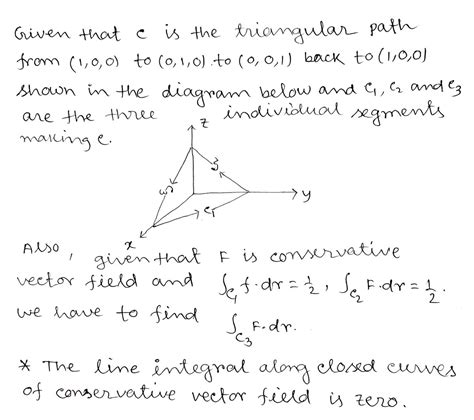 Given that c is the triangular path
from (1,0,0) to (0,1,0) to (0,0,1) back to (1,0,0)
shown in the diagram below and c₁, c₂ and c₃
are the three individual segments
making c.
z
y
c₁
x
Also, given that F is conservative
vector field and ∫c₁ f·dr = 1/2, ∫c₂ F·dr = 1/2.
we have to find ∫c₃ F·dr.
* The line integral along closed curves
of conservative vector field is zero.